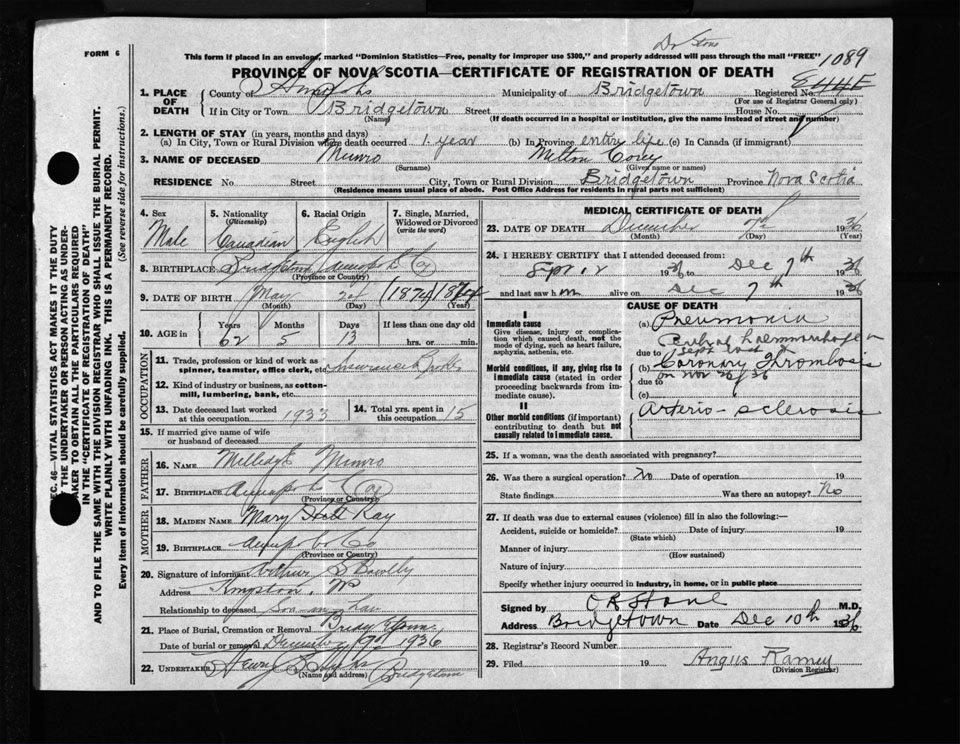 FORM 6
This form if placed in an envelope, marked "Dominion Statistics—Free, penalty for improper use $300," and properly addressed will pass through the mail "FREE"
Dr Stone
1089
PROVINCE OF NOVA SCOTIA—CERTIFICATE OF REGISTRATION OF DEATH
1. PLACE OF DEATH
County of Annapolis Municipality of Bridgetown Registered No.
(For use of Registrar General only)
If in City or Town Bridgetown Street House No
(Name) (If death occurred in a hospital or institution, give the name instead of street and number)
2. LENGTH OF STAY (in years, months and days)
(a) In City, Town or Rural Division where death occurred 1 year (b) In Province entire life (c) In Canada (if immigrant)
3. NAME OF DECEASED Munro Milton Corey
(Surname) (Given name or names)
RESIDENCE No Street City, Town or Rural Division Bridgetown Province Nova Scotia
(Residence means usual place of abode. Post Office Address for residents in rural parts not sufficient)
4. Sex Male
5. Nationality (Citizenship) Canadian
6. Racial Origin English
7. Single, Married, Widowed or Divorced (write the word)
8. BIRTHPLACE Bridgetown Annap Co
(Province or Country)
9. DATE OF BIRTH May 24 1874 1874
(Month) (Day) (Year)
10. AGE in Years Months Days If less than one day old
62 5 13 hrs. or min.
OCCUPATION
11. Trade, profession or kind of work as spinner, teamster, office clerk, etc. Insurance
12. Kind of industry or business, as cotton-mill, lumbering, bank, etc.
13. Date deceased last worked at this occupation 1933
14. Total yrs. spent in this occupation 15
15. If married give name of wife or husband of deceased
FATHER
16. NAME Munro
17. BIRTHPLACE Annap Co
(Province or Country)
MOTHER
18. MAIDEN NAME Mary Ray
19. BIRTHPLACE Annap Co
(Province or Country)
20. Signature of informant Arthur S Bowlby
Address
Relationship to deceased Son-in-law
21. Place of Burial, Cremation or Removal
Date of burial or removal December 9th 1936
22. UNDERTAKER Bridgetown
(Name and address)
MEDICAL CERTIFICATE OF DEATH
23. DATE OF DEATH December 7th 1936
(Month) (Day) (Year)
24. I HEREBY CERTIFY that I attended deceased from:
Sept 12 1936 Dec 7th 1936
and last saw him alive on Dec 7th 1936
CAUSE OF DEATH
I
Immediate cause
Give disease, injury or complication which caused death, not the mode of dying, such as heart failure, asphyxia, asthenia, etc.
(a) Pneumonia
Cerebral haemorrhage on
due to
Morbid conditions, if any, giving rise to immediate cause (stated in order proceeding backwards from immediate cause).
(b) Coronary Thrombosis
on Nov 26/36
due to
(c)
II
Other morbid conditions (if important) contributing to death but not causally related to immediate cause.
Arterio-sclerosis
25. If a woman, was the death associated with pregnancy?
26. Was there a surgical operation? No Date of operation 19
State findings Was there an autopsy? No
27. If death was due to external causes (violence) fill in also the following:—
Accident, suicide or homicide? Date of injury 19
(State which)
Manner of injury
(How sustained)
Nature of injury
Specify whether injury occurred in industry, in home, or in public place
Signed by Stone M.D.
Address Bridgetown Date Dec 10th 1936
28. Registrar's Record Number
29. Filed 19 Angus Ramey
(Division Registrar)
SEC. 46—VITAL STATISTICS ACT MAKES IT THE DUTY
OF THE UNDERTAKER OR PERSON ACTING AS UNDERTAKER TO OBTAIN ALL THE PARTICULARS REQUIRED
IN THE "CERTIFICATE OF REGISTRATION OF DEATH"
AND TO FILE THE SAME WITH THE DIVISION REGISTRAR WHO SHALL ISSUE THE BURIAL PERMIT.
WRITE PLAINLY WITH UNFADING INK. THIS IS A PERMANENT RECORD.
Every item of information should be carefully supplied. (See reverse side for instructions.)